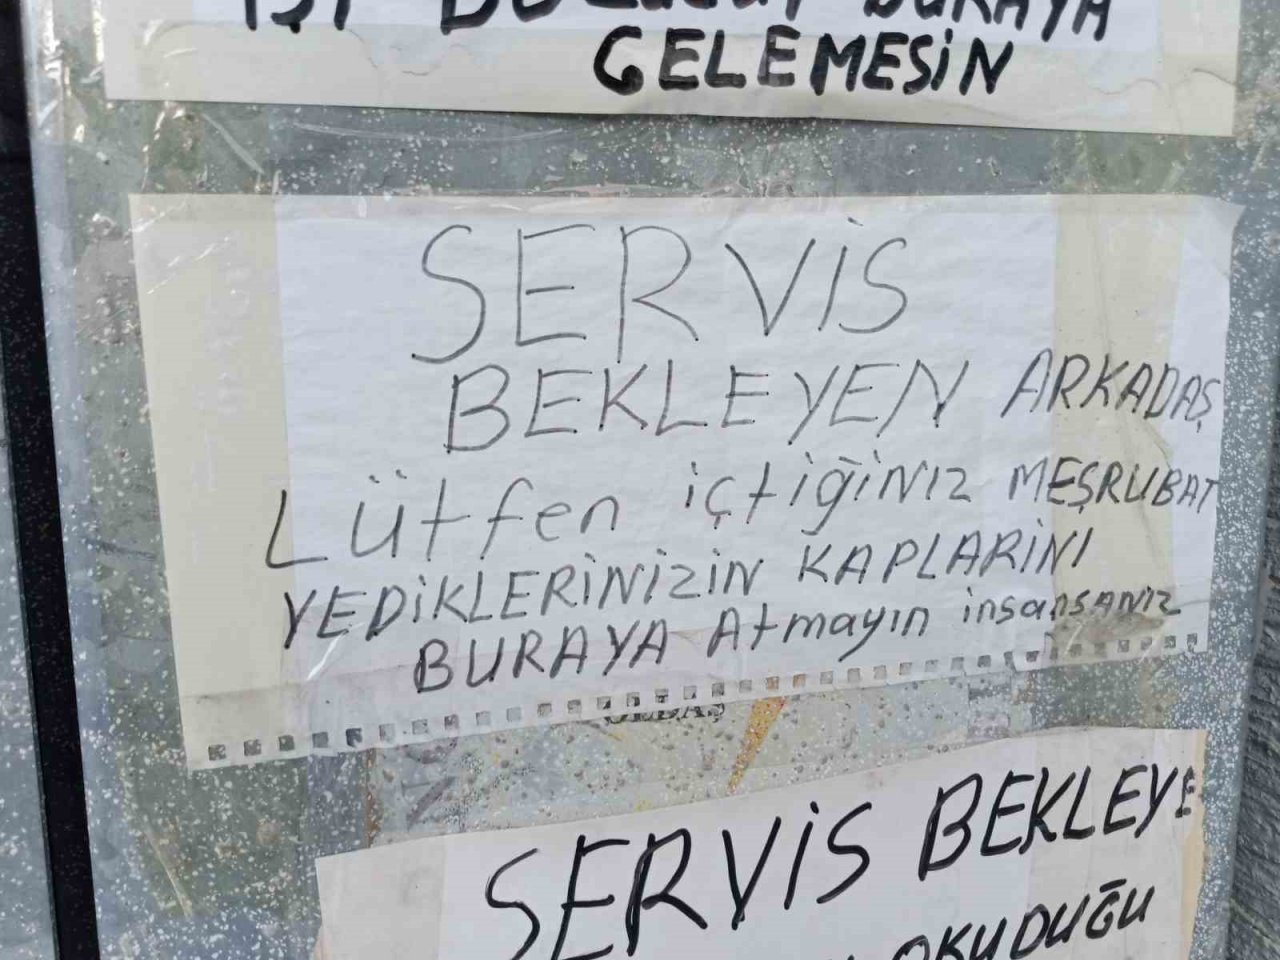 BURAYA
GELEMESİN
SERVİS
BEKLEYEN ARKADAŞ
LÜtfen içtiğiNiz MEŞRUBAT
YEDİKLERİNİZİN KAPLARINI
BURAYA Atmayın insansANIZ
SERVİS BEKLEYE
OKUDUĞU